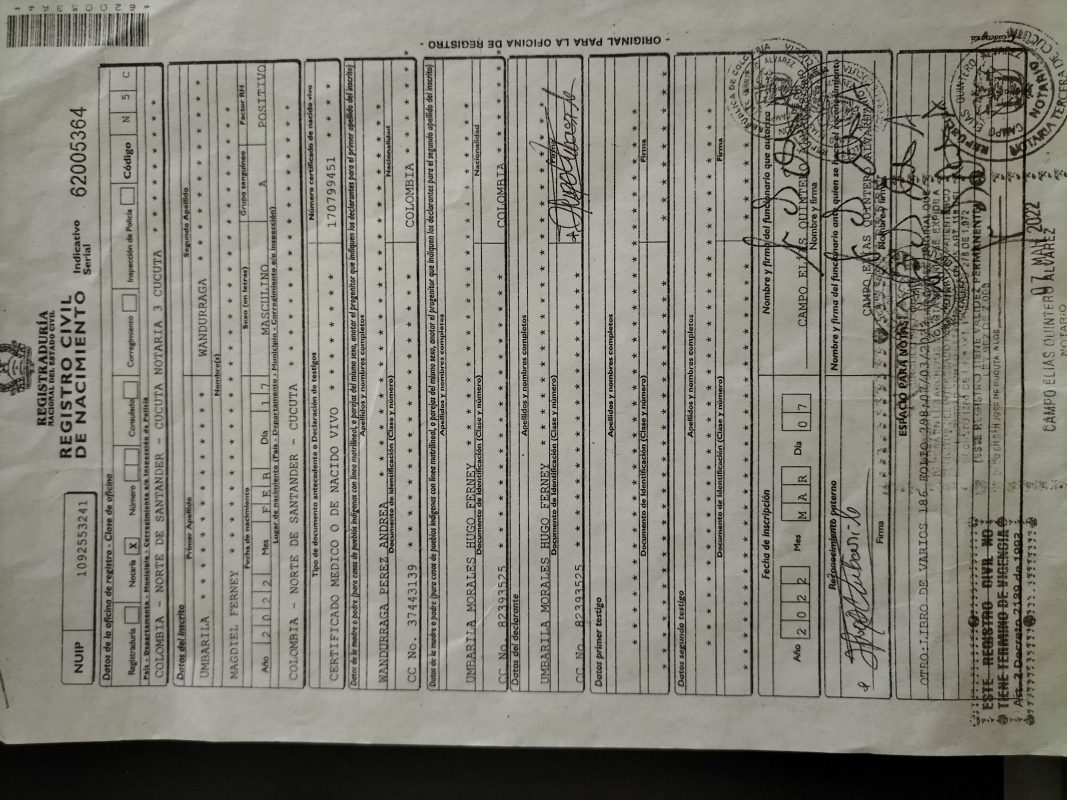 REGISTRADURÍA
NACIONAL DEL ESTADO CIVIL
REGISTRO CIVIL
DE NACIMIENTO
NUIP 1092553241
Indicativo Serial 62005364
Datos de la oficina de registro - Clase de oficina
Registraduría Notaría X Número Consulado Corregimiento Inspección de Policía Código N 5 C
País - Departamento - Municipio - Corregimiento e/o Inspección de Policía
COLOMBIA - NORTE DE SANTANDER - CUCUTA NOTARIA 3 CUCUTA * * * * * * * * * *
Datos del inscrito
Primer Apellido Segundo Apellido
UMBARILA * * * * * * * * * * WANDURRAGA * * * * * * * * * *
Nombre(s)
MAGDIEL FERNEY * * * * * * * * * *
Fecha de nacimiento Sexo (en letras) Grupo sanguíneo Factor RH
Año 2 0 2 2 Mes F E B Día 1 7 MASCULINO A POSITIVO
Lugar de nacimiento (País - Departamento - Municipio - Corregimiento e/o Inspección)
COLOMBIA - NORTE DE SANTANDER - CUCUTA * * * * * * * * * *
Tipo de documento antecedente o Declaración de testigos Número certificado de nacido vivo
CERTIFICADO MEDICO O DE NACIDO VIVO * * * * * * 170799451 * * * * *
Datos de la madre o padre (para casos de pueblos indígenas con línea matrilineal, o parejas del mismo sexo, anotar el progenitor que indiquen los declarantes para el primer apellido del inscrito)
Apellidos y nombres completos
WANDURRAGA PEREZ ANDREA * * * * * * * * * *
Documento de identificación (Clase y número) Nacionalidad
CC No. 37443139 * * * * * * * * * * COLOMBIA * * * * * *
Datos de la madre o padre (para casos de pueblos indígenas con línea matrilineal, o parejas del mismo sexo, anotar el progenitor que indiquen los declarantes para el segundo apellido del inscrito)
Apellidos y nombres completos
UMBARILA MORALES HUGO FERNEY * * * * * * * * * *
Documento de identificación (Clase y número) Nacionalidad
CC No. 82393525 * * * * * * * * * * COLOMBIA * * * * * *
Datos del declarante
Apellidos y nombres completos
UMBARILA MORALES HUGO FERNEY * * * * * * * * * *
Documento de identificación (Clase y número) Firma
CC No. 82393525 * * * * * * * * * *
Datos primer testigo
Apellidos y nombres completos
* * * * * * * * * *
Documento de identificación (Clase y número) Firma
* * * * * * * * * *
Datos segundo testigo
Apellidos y nombres completos
* * * * * * * * * *
Documento de identificación (Clase y número) Firma
* * * * * * * * * *
Fecha de inscripción Nombre y firma del funcionario que autoriza
Año 2 0 2 2 Mes M A R Día 0 7 CAMPO ELIAS QUINTERO
Nombre y firma
Reconocimiento paterno Nombre y firma del funcionario ante quien se hace el reconocimiento
CAMPO ELIAS QUINTERO ALVAREZ
Firma Nombre y firma
ESPACIO PARA NOTAS
OTRO:LIBRO DE VARIOS 186 FOLIO 298 07/03/2022
ESTE REGISTRO CIVIL NO
TIENE TERMINO DE VIGENCIA
Art. 2 Decreto 2189 de 1983
ESTE REGISTRO TIENE VALIDEZ PERMANENTE
07 MAR 2022
CAMPO ELIAS QUINTERO ALVAREZ
NOTARIO
- ORIGINAL PARA LA OFICINA DE REGISTRO -